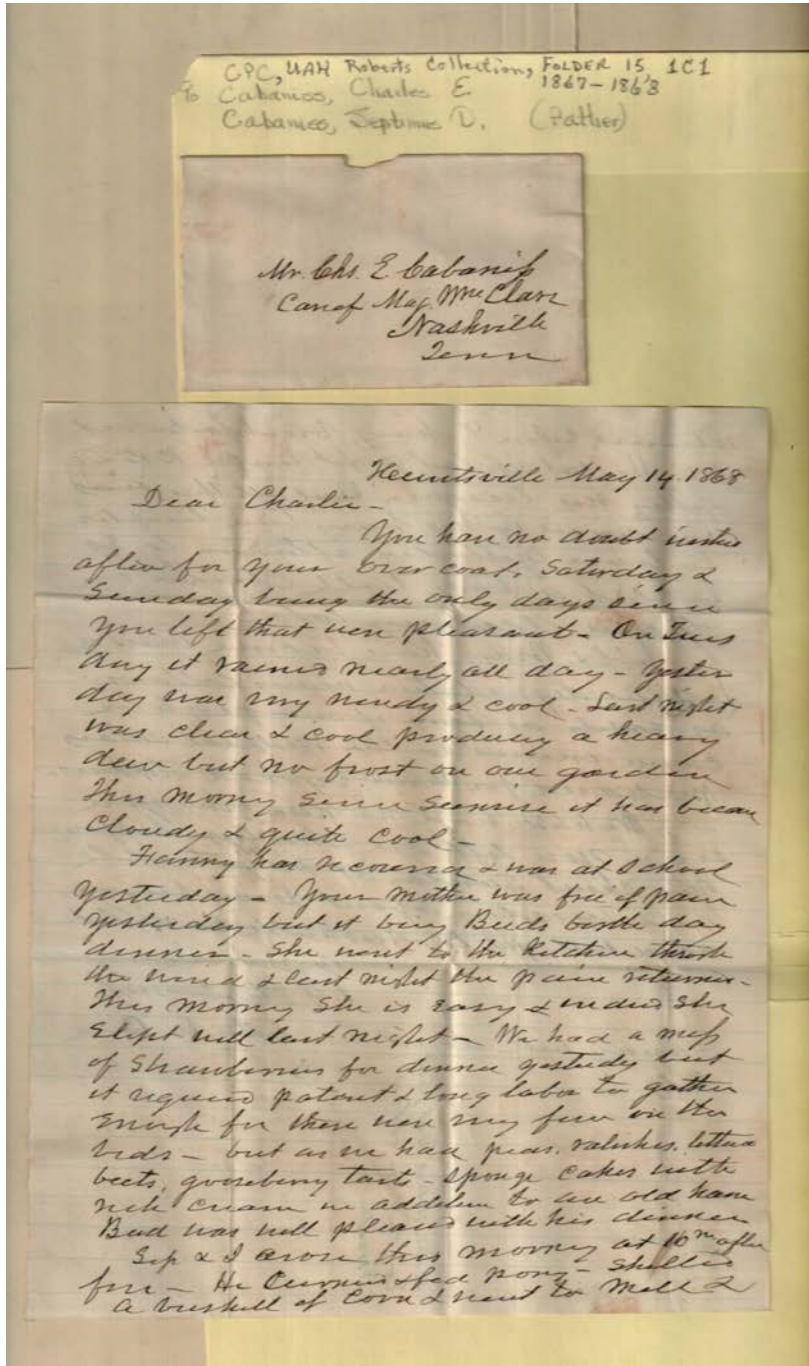 CPC, UAH Roberts Collection, FOLDER 15 1C1
to Cabaniss, Charles E. 1867-1868
Cabaniss, Septimus D. (Father)
Mr. Chs. E Cabaniss
Care of Maj. Wm Clare
Nashville
Tenn
Huntsville May 14. 1868
Dear Charlie -
You have no doubt wished
often for your over coat. Saturday &
Sunday being the only days since
you left that were pleasant - On Tues
day it rained nearly all day - Yester
day was very windy & cool - Last night
was clear & cool producing a heavy
dew but no frost on our garden
This morning since sunrise it has become
cloudy & quite cool -
Fanny has recovered & was at school
yesterday - Your mother was free of pain
yesterday but it being Buds birth day
dinner - She went to the Kitchen through
the wind & last night the pain returned -
This morning she is easy & indeed she
slept well last night - We had a mess
of Strawberries for dinner yesterday but
it required patient & long labor to gather
enough for there were very few on the
beds - but as we had peas, radishes, lettuce
beets, gooseberry tarts - sponge cakes with
rich cream in addition to an old ham
Bud was well pleased with his dinner
Sep & I arose this morning at 10 m after
five - He Curried & fed pony - shelled
a bushell of Corn & went to Mill &